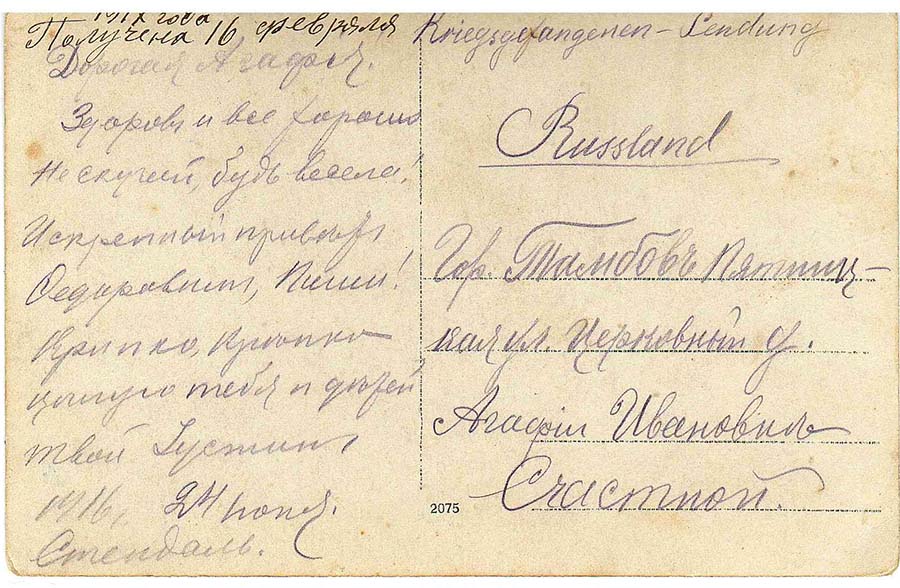 года
Получена 16 февраля
Дорогая Агафия.
Здоровъ и все хорошо
Не скучай, будь весела!
Искренный привѣтъ
Федоровымъ, Пиши!
Крѣпко, крѣпко
цѣлую тебя и дѣтей
твой Густинъ
1916, 24 ноя.
Стендаль.
Kriegsgefangenen-Sendung
Russland
Гор. Тамбовъ Пятниц-
кая ул. Церковный д.
Агафіи Ивановнѣ
Счастной.
2075